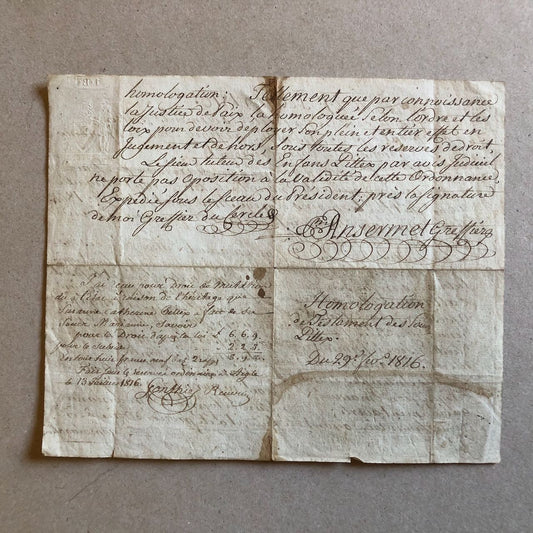 homologation; Tellement que par connoissance
la Justice de Paix l'a homologuée selon l'ordre et les
loix pour devoir deployer son plein et entier effet en
jugement et de hors, sous toutes les reserves de droit.
Le Sieur tuteur des Enfans Pittex par avis Judiciel
ne porte pas oposition à la Validité de cette Ordonnance,
Expédié sous le sceau du Président; près la signature
de moi Greffier du Cercle
Ansermet Greffier
J'ai reçu pour droit de Mutation
dû à l'état raison de l'héritage que
Susanne Catherine fait de sa
Soeur Marianne, Savoir
pour le Droit d'ap. la loi £ 6.6.9
pour le 2.2.3
8.9.
Fait sous la reserve ordinaire
le 13 1816.
Homologation
de Testament des
Pittex.
Du 29e 1816.